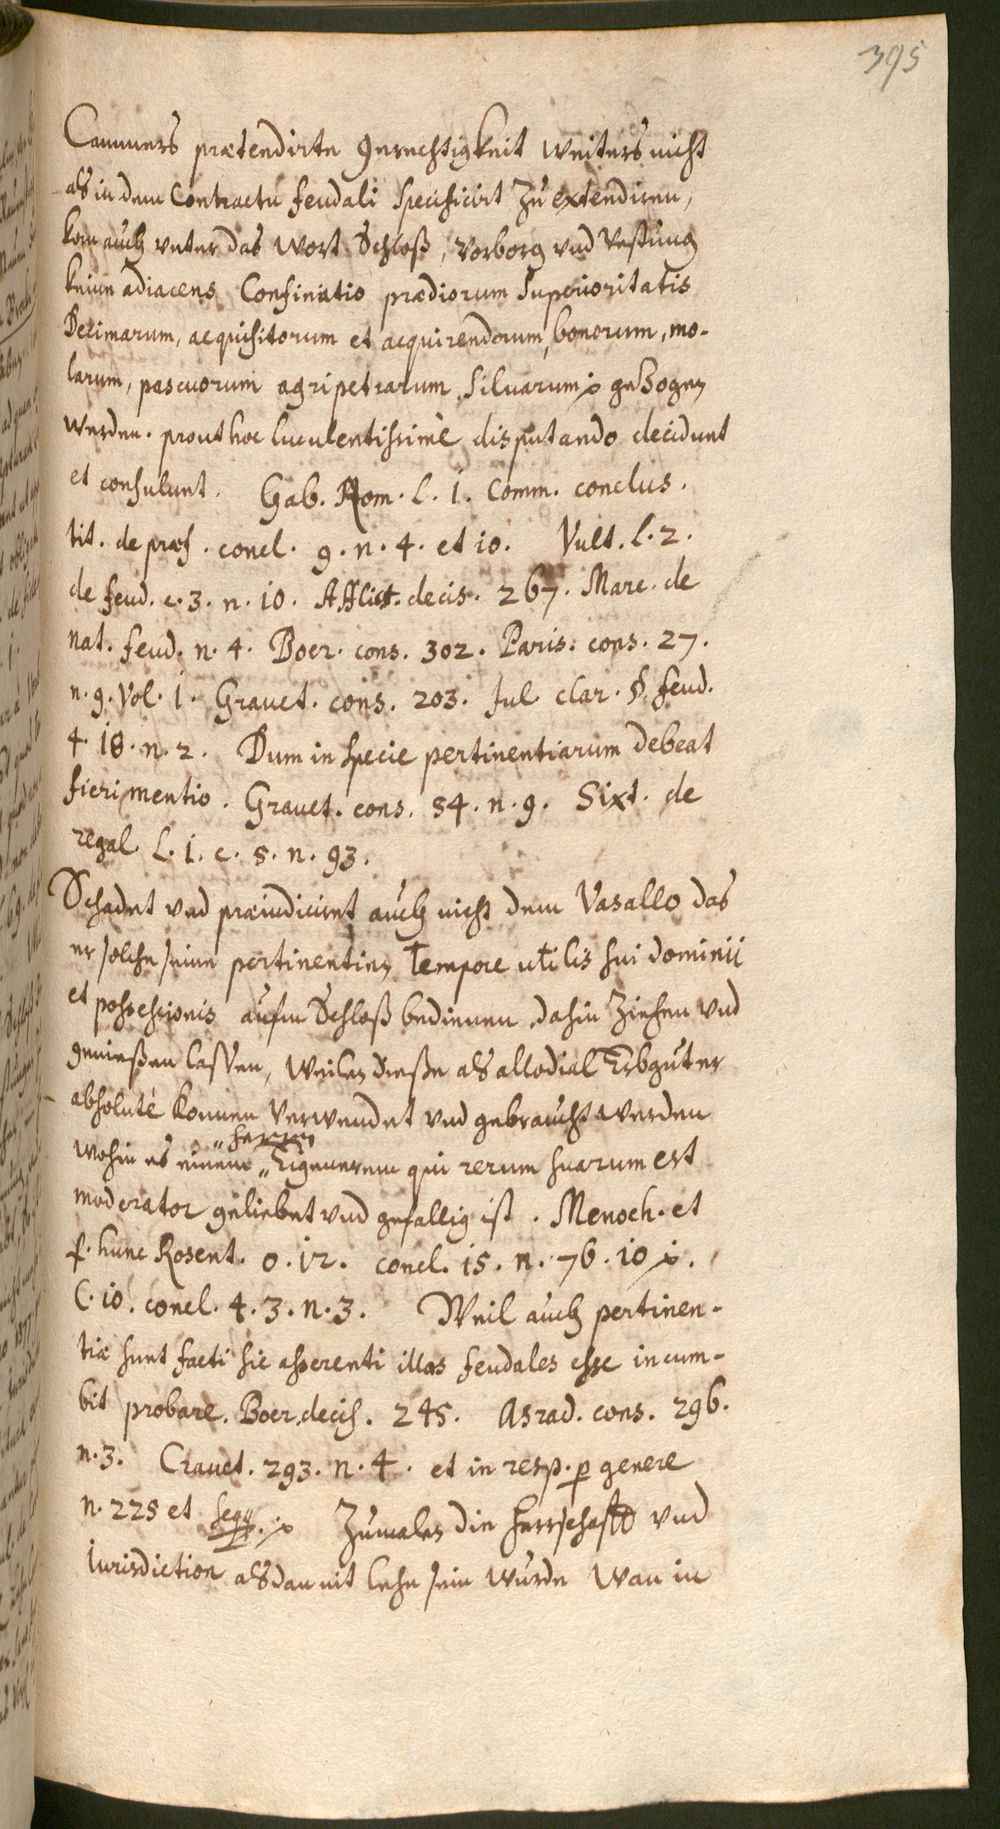 395
Cammers prætendirte gerechtigkeit weiters nicht
als in dem Contractu feudali specificirt zu extendiren,
kom auch unter das wort Schloß, vorborg und vestung
keine adiacens Confinatio prædiorum Superioritatis
Decimarum, acquisitorum et acquirendorum, bonorum, mo-
larum, pascuorum agripetrarum, silvarum gezogen
werden. prout hoc luculentissimè disputando decidunt
et consulunt. Gab. Rom. L. 1. Comm. conclus.
tit. de præs. concl. 9. n. 4. et 10. Vult. l. 2.
de feud. c. 3. n. 10. Afflict. decis. 267. Marc. de
nat. feud. n. 4. Boer. cons. 302. Paris. cons. 27.
n. 9. Vol. 1. Gravet. cons. 203. Jul clar. §. feud.
4. 18. n. 2. Dum in specie pertinentiarum debeat
fieri mentio. Gravet. cons. 54. n. 9. Sixt. de
regal L. 1. c. 5. n. 93.
Schadet und præiudiciret auch nicht dem Vasallo das
er solche seine pertinentien tempore utilis sui dominii
et possessionis aufm Schloß bedienen, dahin ziehen und
genießen lassen, weilen dieße als allodial Erbguter
absolutè konnen verwendet und gebraucht werden
wohin es einem Eigenerem qui rerum suarum est
"herren
moderator geliebet und gefallig ist. Menoch. et
p. hunc Rosent. c. 12. concl. 15. n. 76. 10
C. 10. concl. 4. 3. n. 3. Weil auch pertinen-
tiæ sunt facti sic asserenti illas feudales esse incum-
bit probare. Boer. decis. 245. Asrad. cons. 296.
n. 3. Cravet. 293. n. 4. et in resp. p genere
n. 225 et seqq. Zumalen die herrschafft und
Jurisdiction als dan nit lehn sein wurde wan in